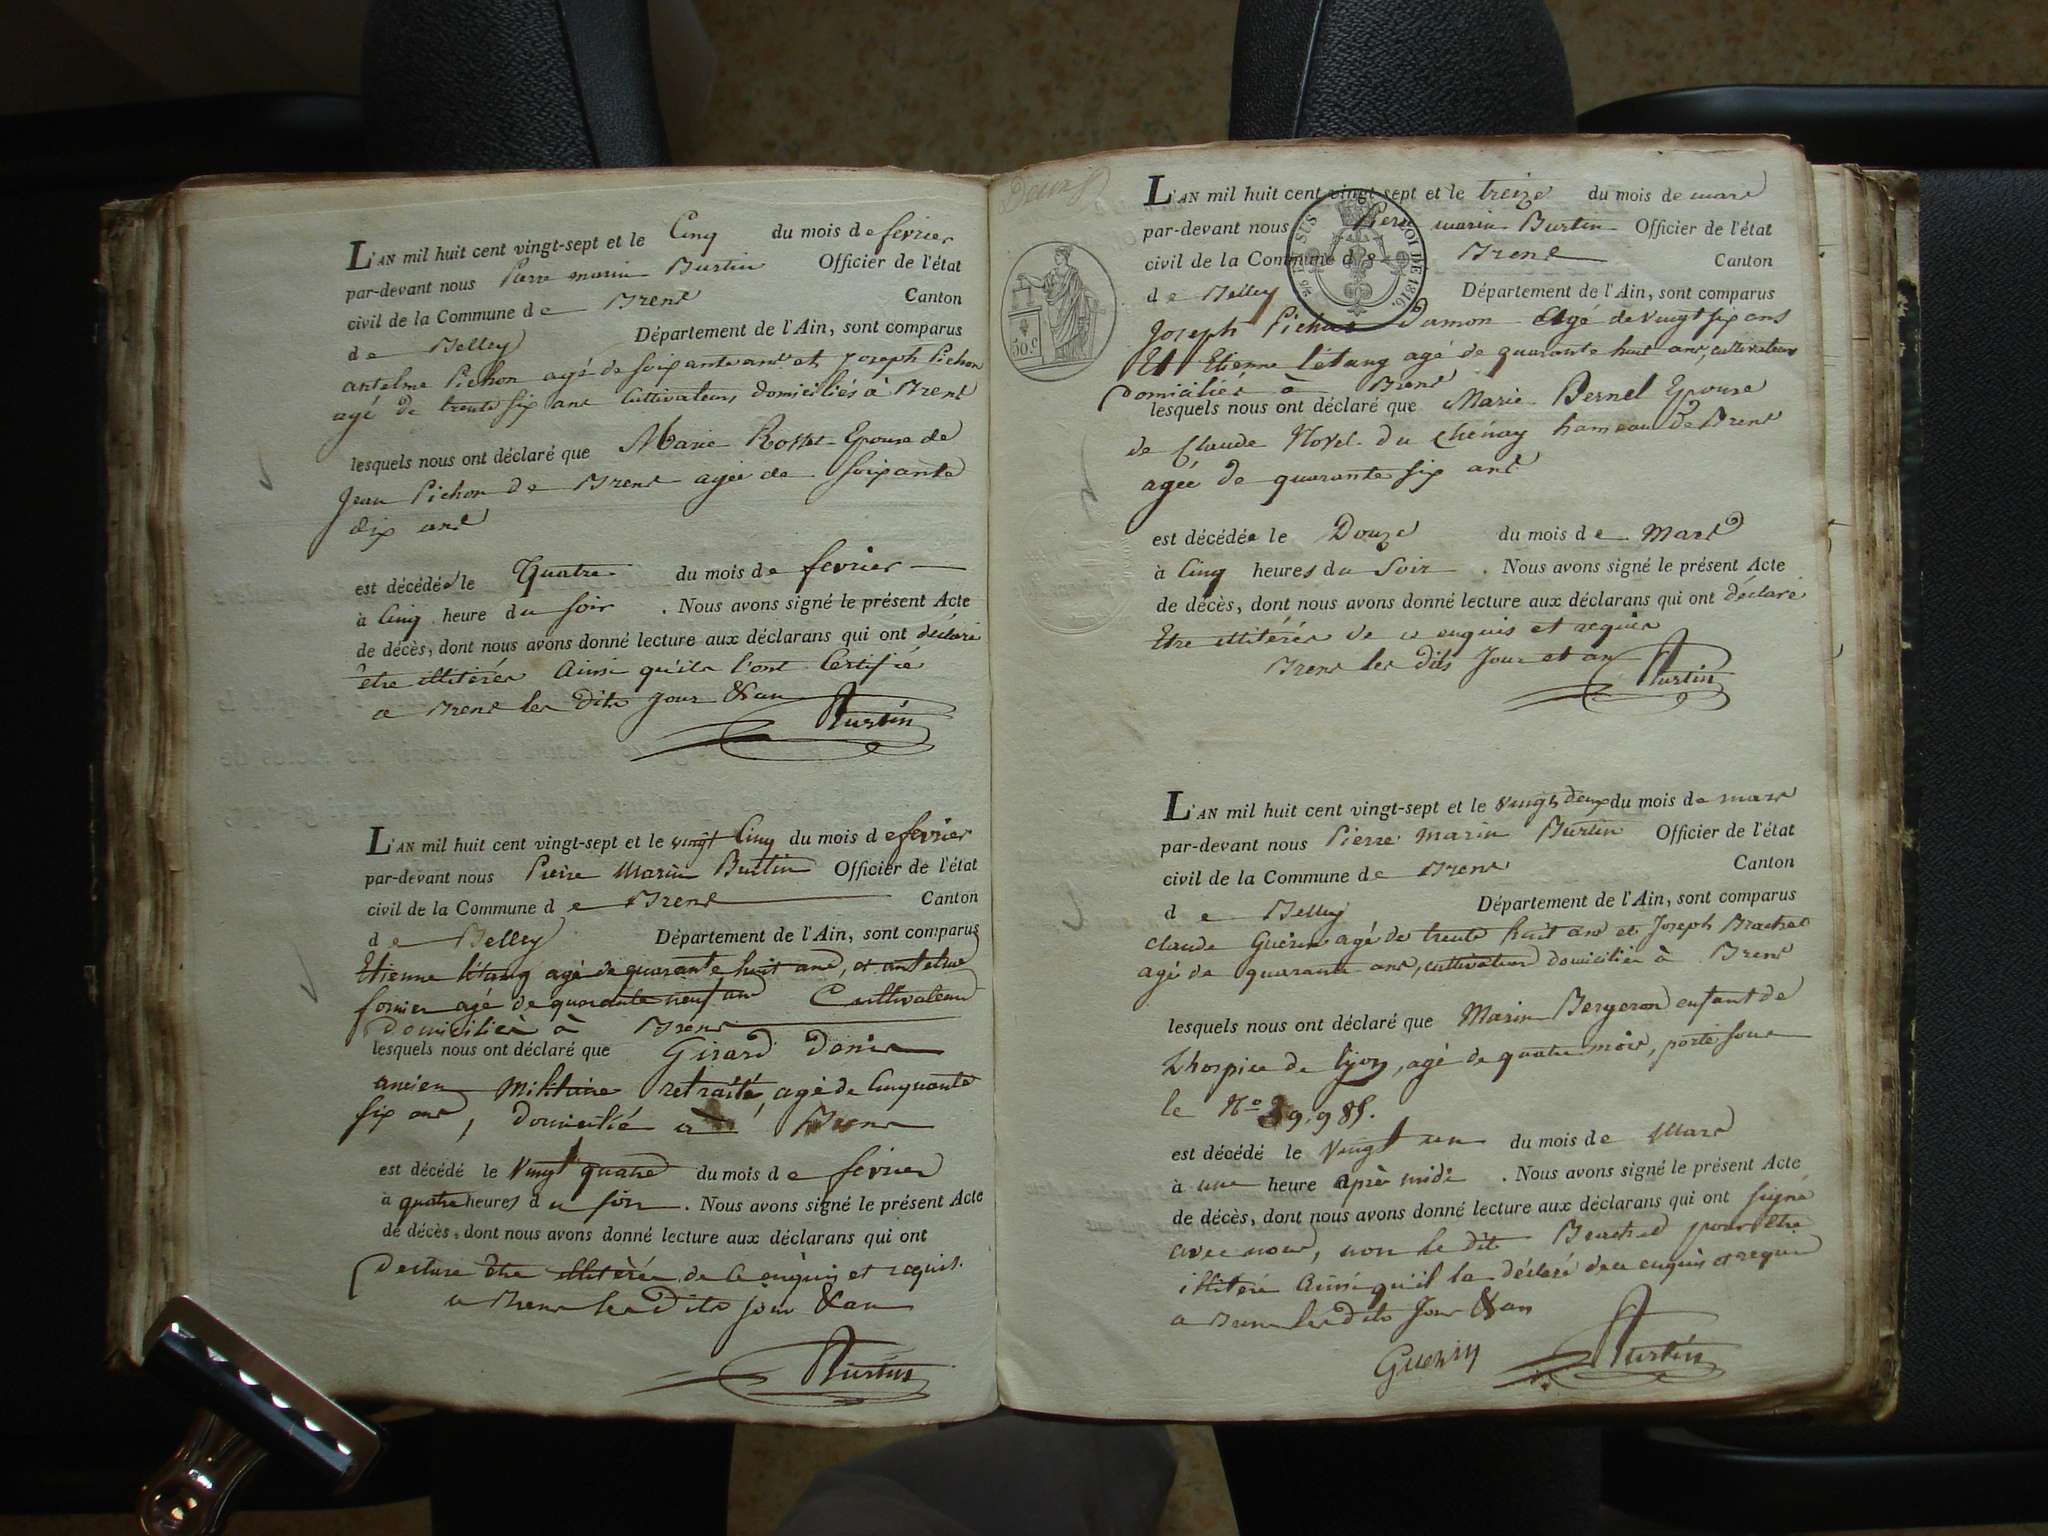 L'AN mil huit cent vingt-sept et le Cinq du mois de fevrier
par-devant nous Pierre marin Burtin Officier de l'état
civil de la Commune de Brens Canton
de Belley Département de l'Ain, sont comparus
antelme Pichon agé de soixante ans et Joseph Pichon
agé de trente six ans Cultivateurs domiciliés à Brens
lesquels nous ont déclaré que Marie Rosset Epouse de
Jean Pichon de Brens agée de soixante
dix ans
est décédée le Quatre du mois de fevrier
à Cinq heure du soir . Nous avons signé le présent Acte
de décès, dont nous avons donné lecture aux déclarans qui ont déclaré
être illitérés Ainsi qu'ils l'ont Certifié
a Brens les dits jour & an
Burtin
L'AN mil huit cent vingt-sept et le vingt Cinq du mois de fevrier
par-devant nous Pierre Marin Burtin Officier de l'état
civil de la Commune de Brens Canton
de Belley Département de l'Ain, sont comparus
Etienne létang agé de quarante huit ans, et antelme
fornier agé de quarante neuf ans Cultivateurs
Domiciliés à Brens
lesquels nous ont déclaré que Girard Denis
ancien Militaire retraité, agé de Cinquante
six ans, domicilié à Brens
est décédé le Vingt quatre du mois de fevrier
à quatre heures du soir . Nous avons signé le présent Acte
de décès, dont nous avons donné lecture aux déclarans qui ont
être illitérés de ce enquis et requis.
a Brens les Dits jour & an
Burtin
L'AN mil huit cent vingt-sept et le treize du mois de mars
par-devant nous Pierre marin Burtin Officier de l'état
civil de la Commune de Brens Canton
de Belley Département de l'Ain, sont comparus
Joseph Pichon Damon Agé de vingt six ans
Et Etienne létang agé de quarante huit ans, cultivateurs
Domiciliés à Brens
lesquels nous ont déclaré que Marie Bernel Epouse
de Claude Hovel du chenay hameau de Brens
agée de quarante six ans
est décédée le Douze du mois de Mars
à Cinq heures du Soir . Nous avons signé le présent Acte
de décès, dont nous avons donné lecture aux déclarans qui ont déclaré
Etre illitérés de ce enquis et requis
Brens les dits Jour et an Burtin
50 c
LOI DE 1816.
L'AN mil huit cent vingt-sept et le vingt deux du mois de mars
par-devant nous Pierre marin Burtin Officier de l'état
civil de la Commune de Brens Canton
de Belley Département de l'Ain, sont comparus
Claude Guérin agé de trente huit ans et Joseph Brachet
agé de quarante ans, cultivateurs domiciliés à Brens
lesquels nous ont déclaré que Marin Bergeron enfant de
L'hospice de lyon, agé de quatre mois, porté sous
le No 39.985.
est décédé le Vingt un du mois de Mars
à une heure après midi . Nous avons signé le présent Acte
de décès, dont nous avons donné lecture aux déclarans qui ont signé
avec nous, non le dit Brachet pour être
illitéré Ainsi qu'il la déclaré de ce enquis et requis
a Brens les dits Jour & an
Guerin Burtin